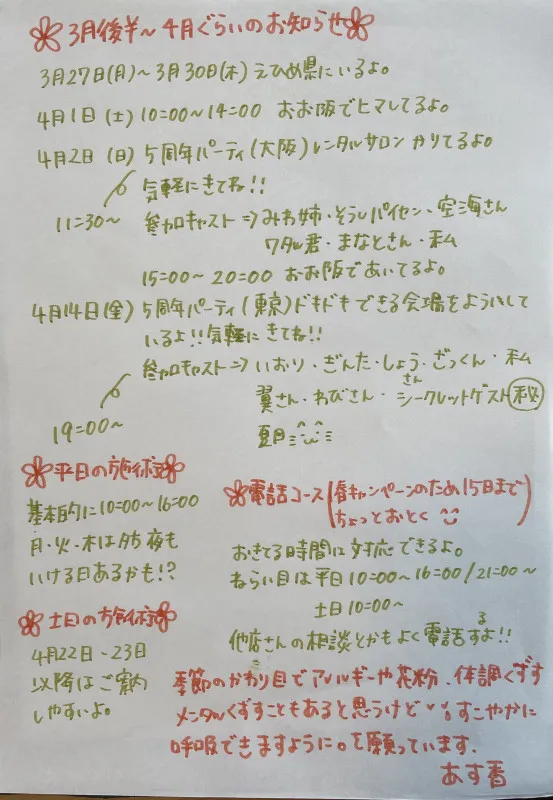 3月後半～4月ぐらいのお知らせ
3月27日(月)～3月30日(木) えひめ県にいるよ。
4月1日 (土) 10:00～14:00 おお阪でヒマしてるよ。
4月2日 (日) 5周年パーティ(大阪)レンタルサロン かりてるよ。
気軽にきてね!!
11:30～ 参加キャスト⇒みわ姉・そうしパイセン・空海さん
ワタル君・まなとさん・私
15:00～20:00 おお阪であいてるよ。
4月14日(金) 5周年パーティ(東京)ドキドキできる会場をよういして
いるよ!!気軽にきてね!!
参加キャスト⇒いおり・ぎんた・しょう・ざっくん・私
翼さん・わびさん・シークレットゲストさん㊙
19:00～
平日の施術
基本的に10:00～16:00
月・火・木は夕方夜も
いける日あるかも!?
土日の施術
4月22日・23日
以降はご案内
しやすいよ。
電話コース(春キャンペーンのため15日まで
ちょっとおとく)
おきてる時間は対応できるよ。
ねらい目は平日10:00～16:00/21:00～
土日10:00～
他店さんの相談とかもよく電話するよ!!
季節のかわり目でアレルギーや花粉、体調くずす
メンタルくずすこともあると思うけど すこやかに
呼吸できますように。を願っています.
あす香